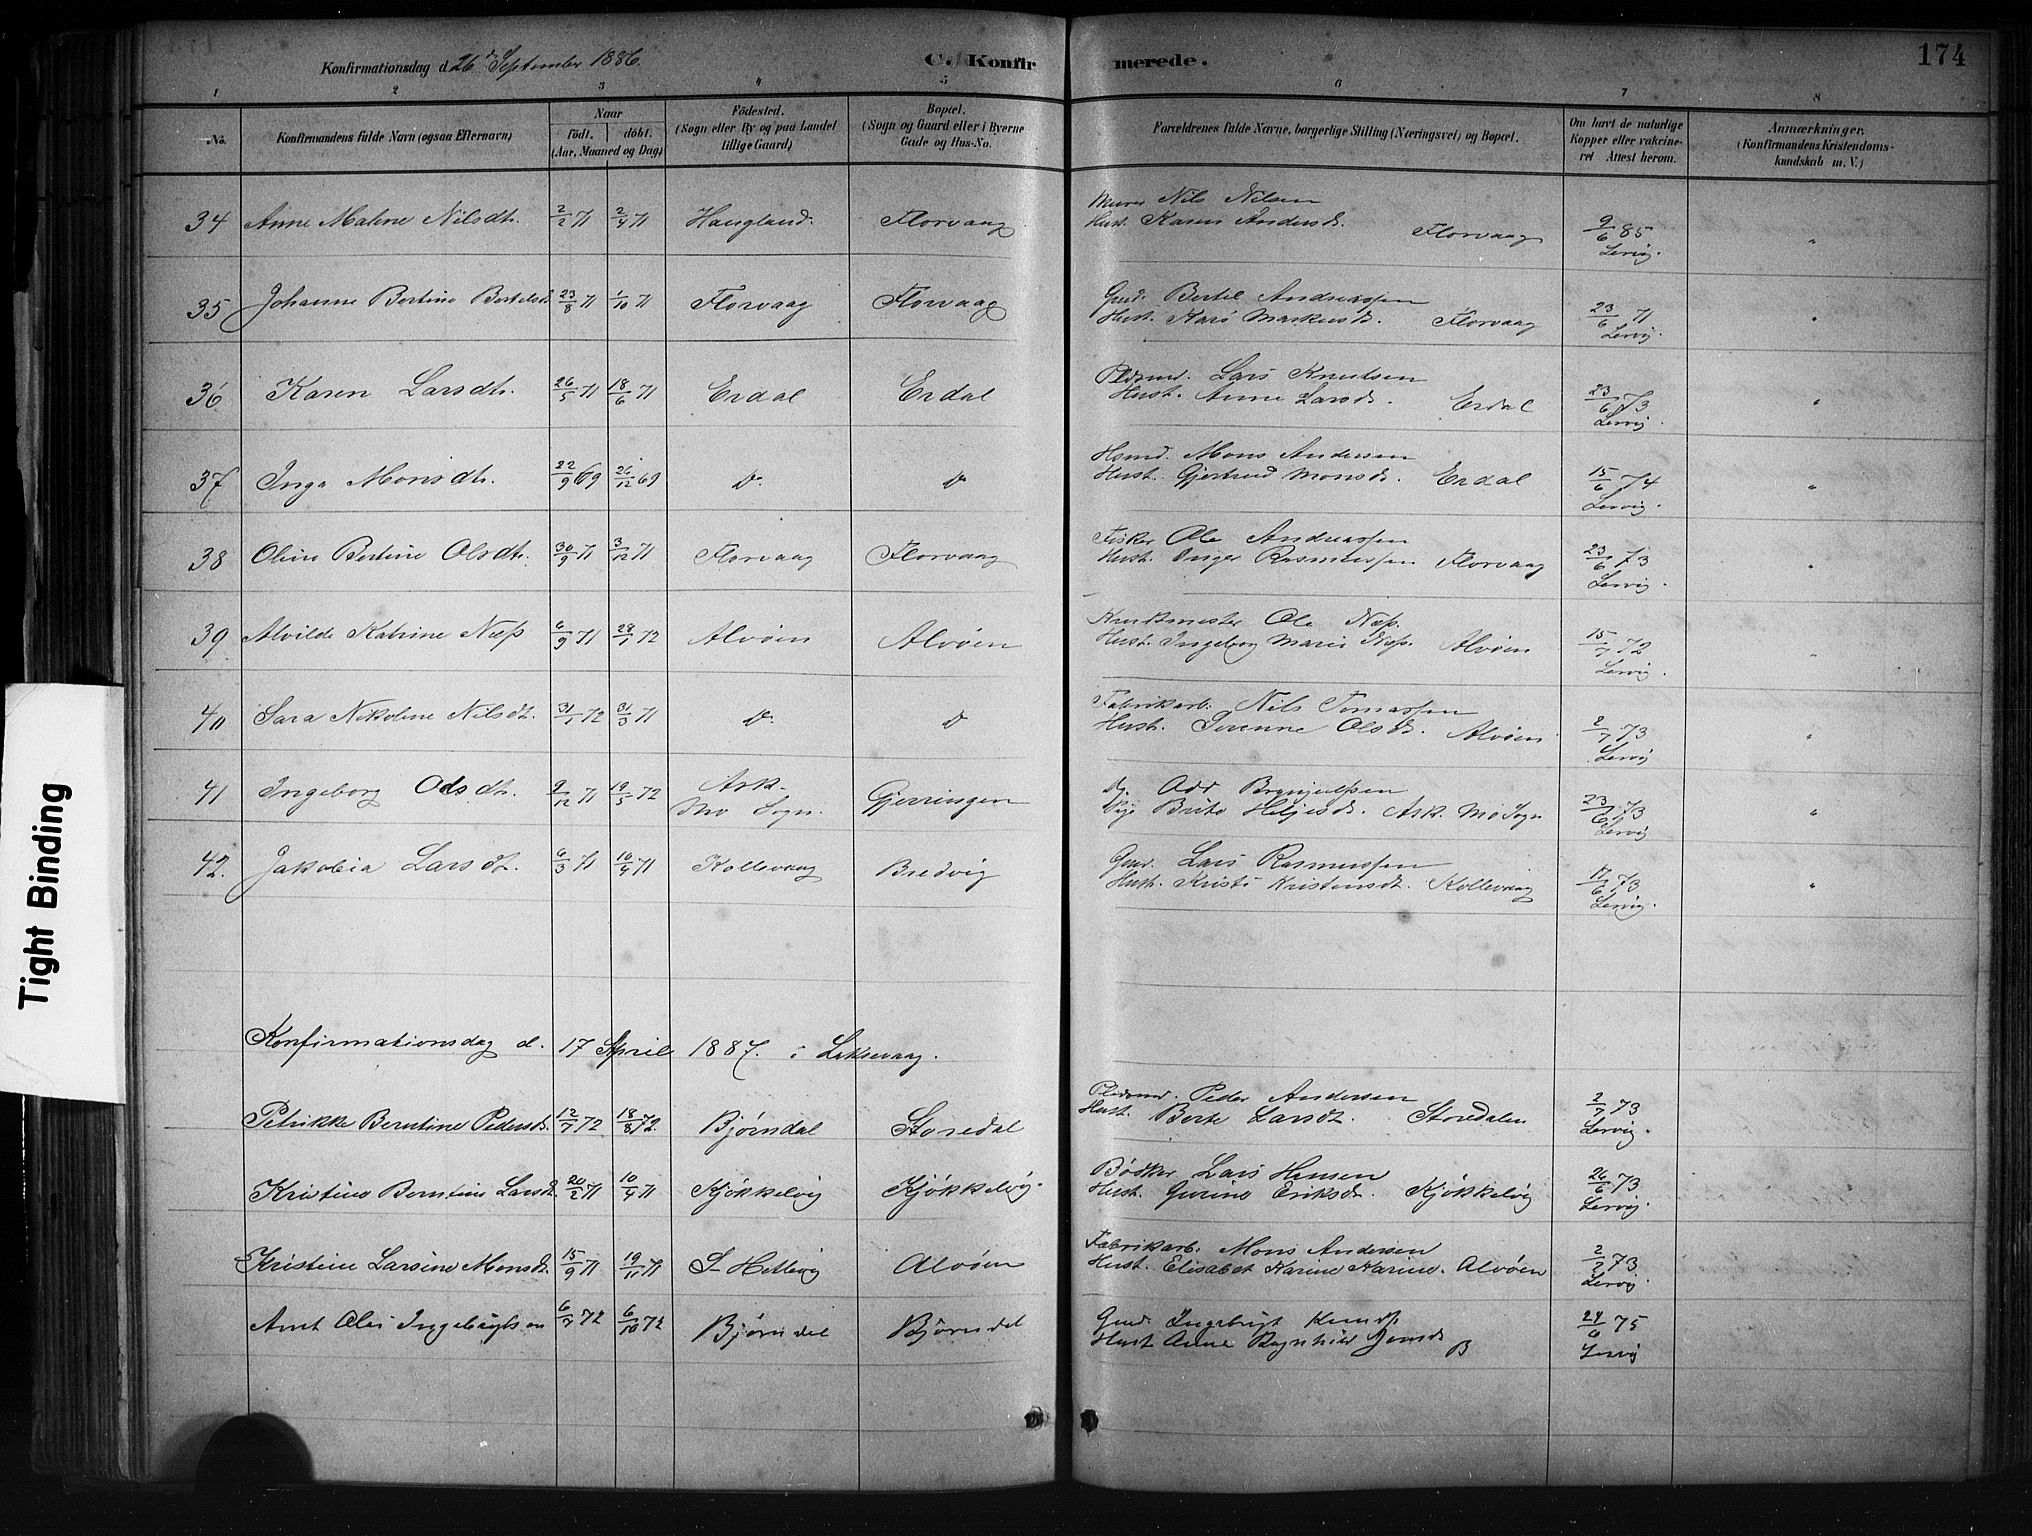 174
Konfirmationsdag d. 26de September 1886.
C. Konfirmerede.
1 2 3 4 5 6 7 8
No.
Konfirmandens fulde Navn (ogsaa Efternavn)
Naar
födt. döbt.
(Aar, Maaned og Dag)
Födested.
(Sogn eller By og paa Landet
tillige Gaard)
Bopæl.
(Sogn og Gaard eller i Byerne
Gade og Hus-No.
Forældrenes fulde Navne, borgerlige Stilling (Næringsvei) og Bopæl.
Om havt de naturlige
Kopper eller vakcine-
ret Attest herom.
Anmærkninger.
(Konfirmandens Kristendoms-
kundskab m. V.)
34 Anne Malene Nilsdtr. 2/2 71 2/4 71 Haugland Florvaag
Murer Nils Nilsen
Hust. Karen Andersd. Florvaag 9/6 85
Lervig. "
35 Johanne Bertine Bertelsd 23/8 71 1/10 71 Florvaag Florvaag
Gmd. Bertel Andreassen
Hust. Kari Markusd. Florvaag 23/6 71
Lervig. "
36 Karen Larsdtr. 26/5 71 18/6 71 Erdal Erdal
Pldsmd. Lars Knutsen
Hust. Anne Larsd. Erdal 23/6 73
Lervig. "
37 Inga Monsdtr. 22/9 69 26/12 69 Do. Do
Hsmd. Mons Andersen
Hust. Gjertrud Monsd. Erdal 15/6 74
Lervig. "
38 Oline Bertine Olsdtr. 30/9 71 3/12 71 Florvaag Florvaag
Fisker Ole Andreassen
Hust. Inger Rasmussen Florvaag 23/6 73
Lervig. "
39 Alvilde Katrine Næss 6/9 71 28/1 72 Alvöen Alvöen
Ole Næss.
Hust. Ingeborg Marie Næss. Alvöen 15/7 72
Lervig. "
40 Sara Nikoline Nilsdt. 31/1 72 31/3 71 Do. Do
Fabrikarb. Nils Tomassen
Hust. Severine Olsd. Alvöen 2/7 73
Lervig "
41 Ingeborg Odsdt. 9/12 71 19/5 72 Ask.
Mo Sogn. Gjerringen
Odd Brynjulfsen
Pige Brite Heljesd. Ask. Mo Sogn 23/6 73
Lervig "
42. Jakobia Larsdt. 6/3 71 10/4 71 Kollevaag Bredvig
Gmd. Lars Rasmussen
Hust. Kristi Kristensdt. Kollevaag 17/6 73
Lervig. "
Konfirmationsdag d. 17 April 1887. i Laksevaag.
Petrikke Berntine Pedersd. 12/7 72 18/8 72. Bjørndal Storedal
Pldsmd. Peder Andersen
Hust. Berte Larsdt. Storedalen 2/7 73
Lervig.
Kristine Berntine Larsdt. 20/2 71 10/4 71 Kjøkkelvig Kjøkkelvig.
Bödker Lars Hansen
Hust. Gurine Eriksd. Kjøkkelvig 26/6 73
Lervig.
Kristine Larsine Monsdt. 15/9 71 19/11 71 S. Hetlevig Alvöen
Fabrikarb. Mons Andersen
Hust. Elisabet Karine Karine. Alvöen 2/2 73
Lervig.
Arnt Olai Ingebrigtsen 6/7 72 6/10 72 Bjørndal Bjørndal
Gmd. Ingebrigt Knuds.
Hust. Anne Ragnhild Jensd. B 24/6 75
Lervig
Tight Binding